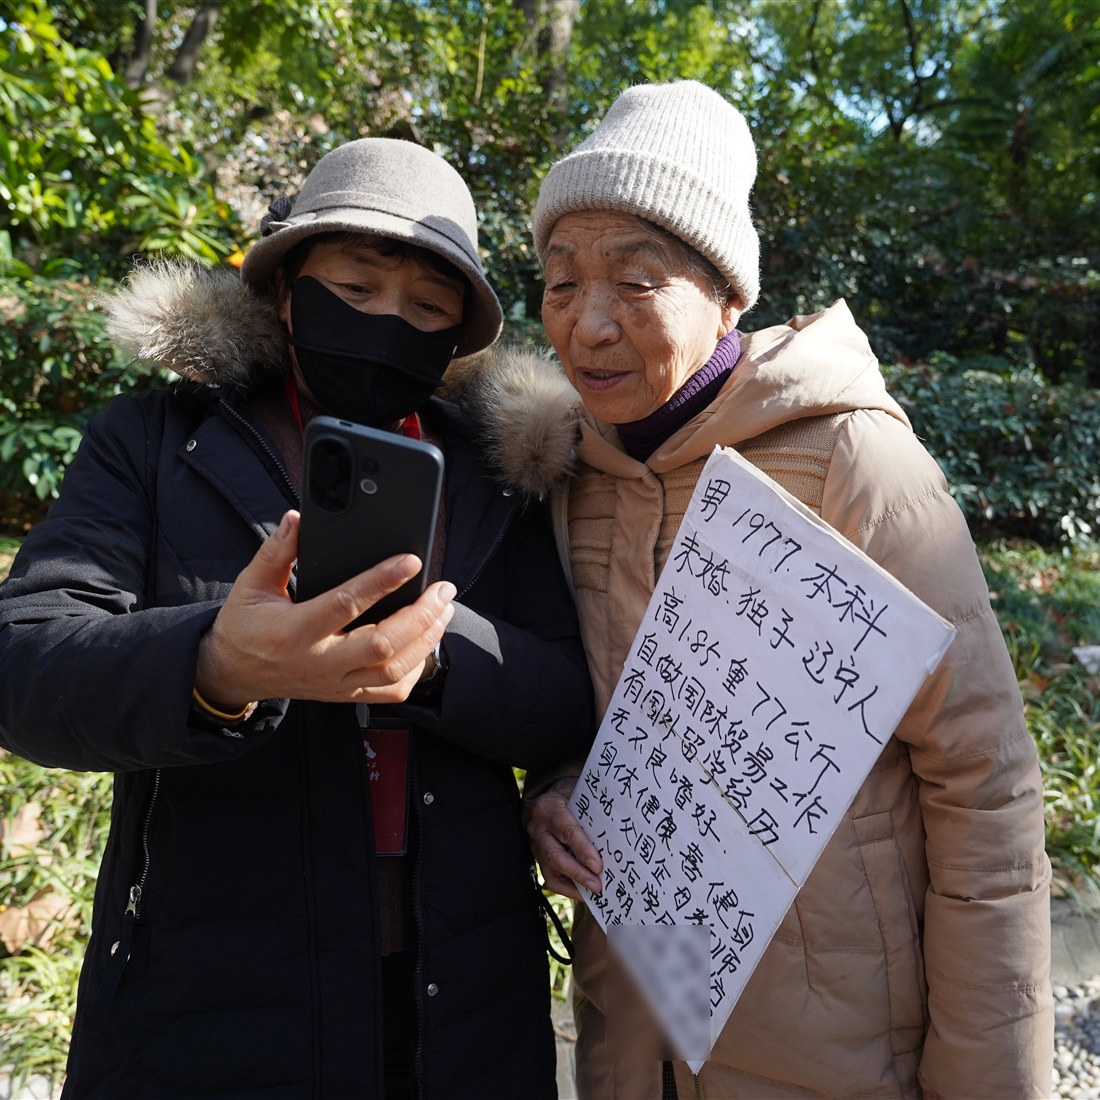 男 1977. 本科
未婚. 独子 辽宁人
高1.85. 重77公斤
自做国际贸易工作
有国外留学经历
无不良嗜好.
身体健康 喜健身
运动 父国企. 母教师
寻: 八〇后.学历
开朗
微信